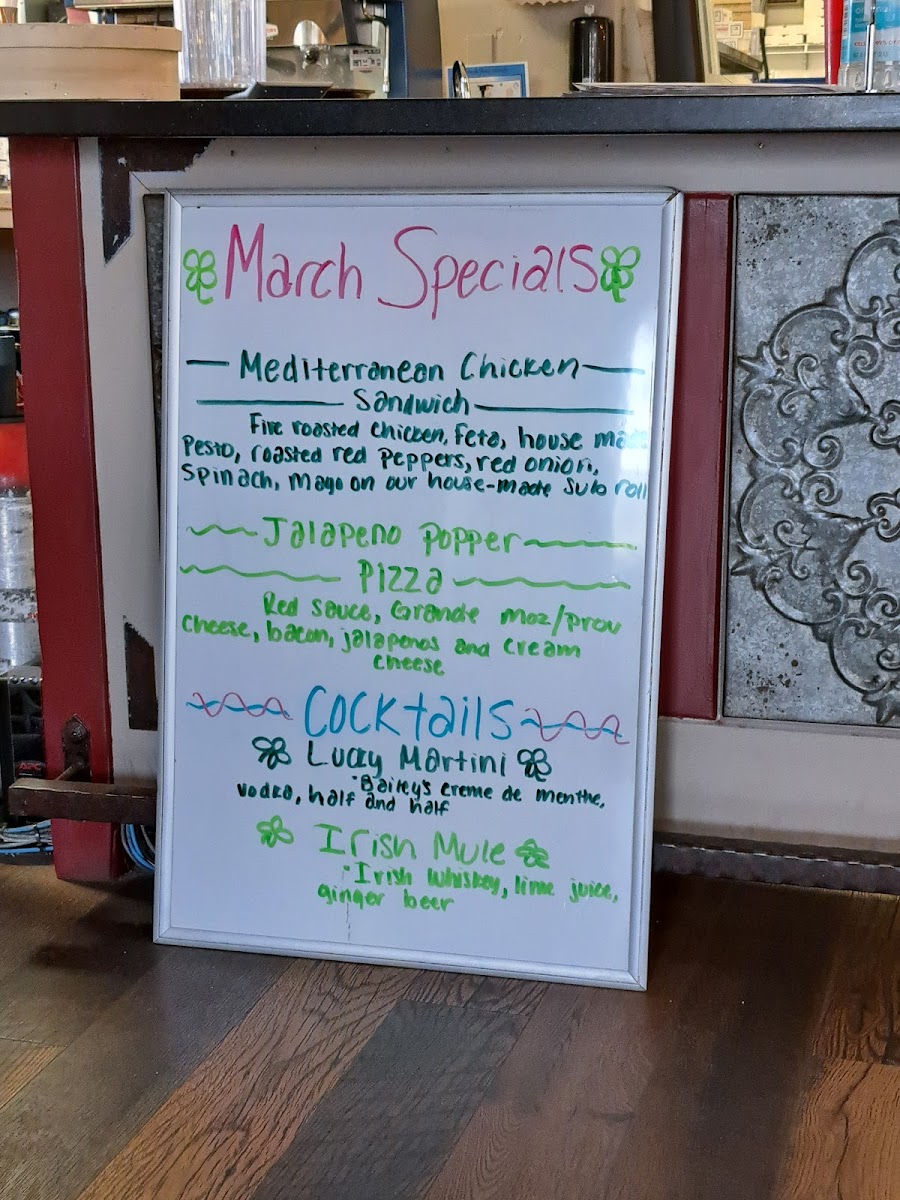 March Specials
Mediterranean Chicken
Sandwich
Fire roasted chicken, Feta, house made
Pesto, roasted red peppers, red onion,
Spinach, mayo on our house-made sub roll
Jalapeno Popper
Pizza
Red sauce, Grande moz/prov
cheese, bacon, jalapenos and cream
cheese
Cocktails
Lucky Martini
•Bailey's creme de menthe,
vodka, half and half
Irish Mule
•Irish whiskey, lime juice,
ginger beer